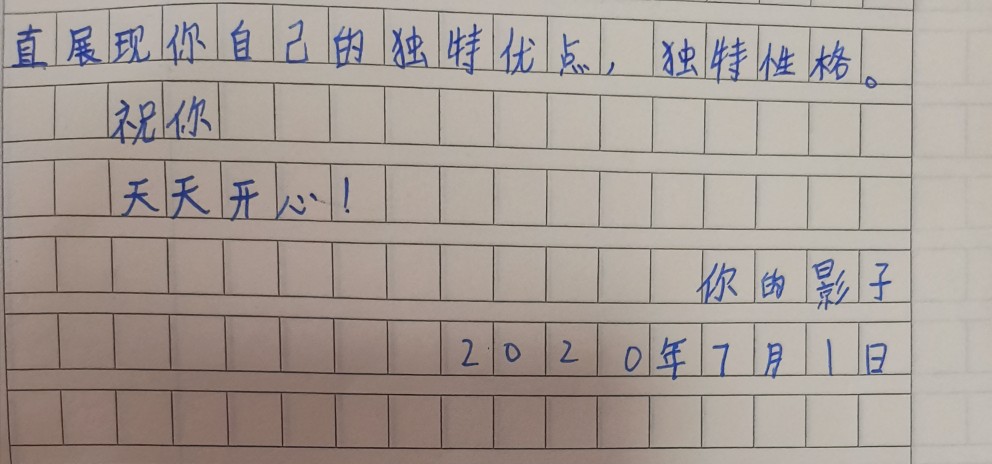 直展现你自己的独特优点，独特性格。
祝你
天天开心！
你的影子
2020年7月1日